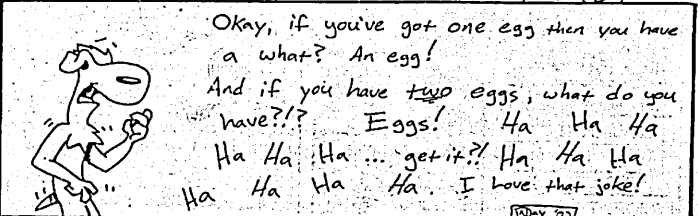 Okay, if you've got one egg then you have
a what? An egg!
And if you have two eggs, what do you
have?!? Eggs! Ha Ha Ha
Ha Ha Ha ... get it?! Ha Ha Ha
Ha Ha Ha Ha. I love that joke!